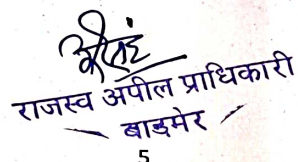 राजस्व अपील प्राधिकारी
बाडमेर
5